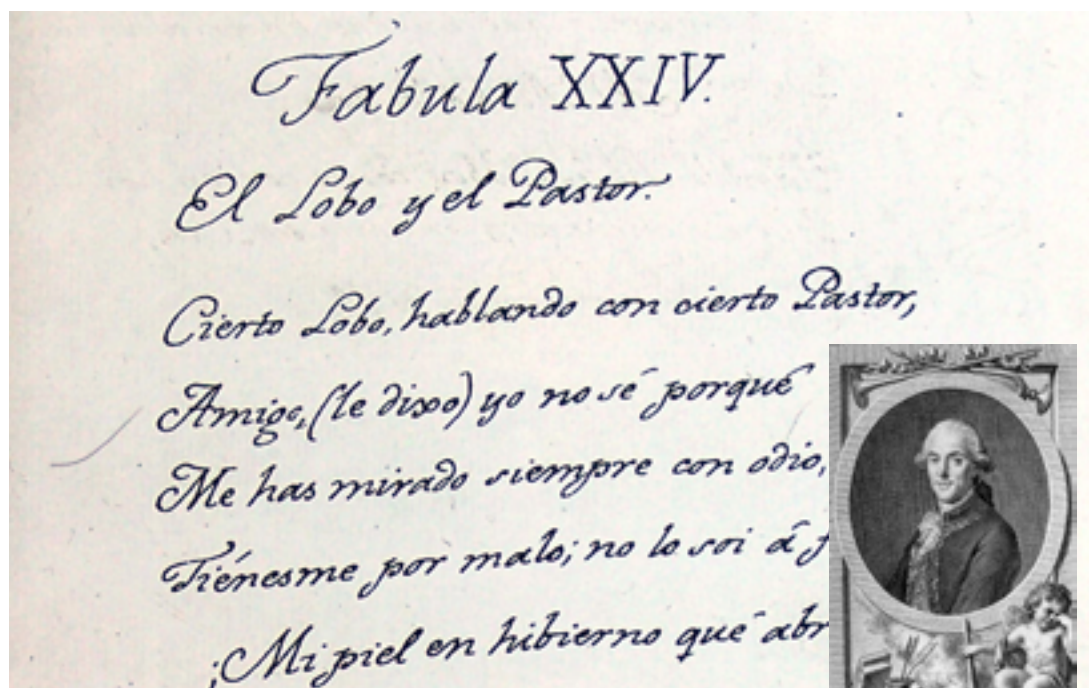 Fabula XXIV.
El Lobo y el Pastor.
Cierto Lobo, hablando con cierto Pastor,
Amigo, (le dixo) yo no sé porqué
Me has mirado siempre con odio,
Tiénesme por malo; no lo soi á
¡Mi piel en hibierno qué